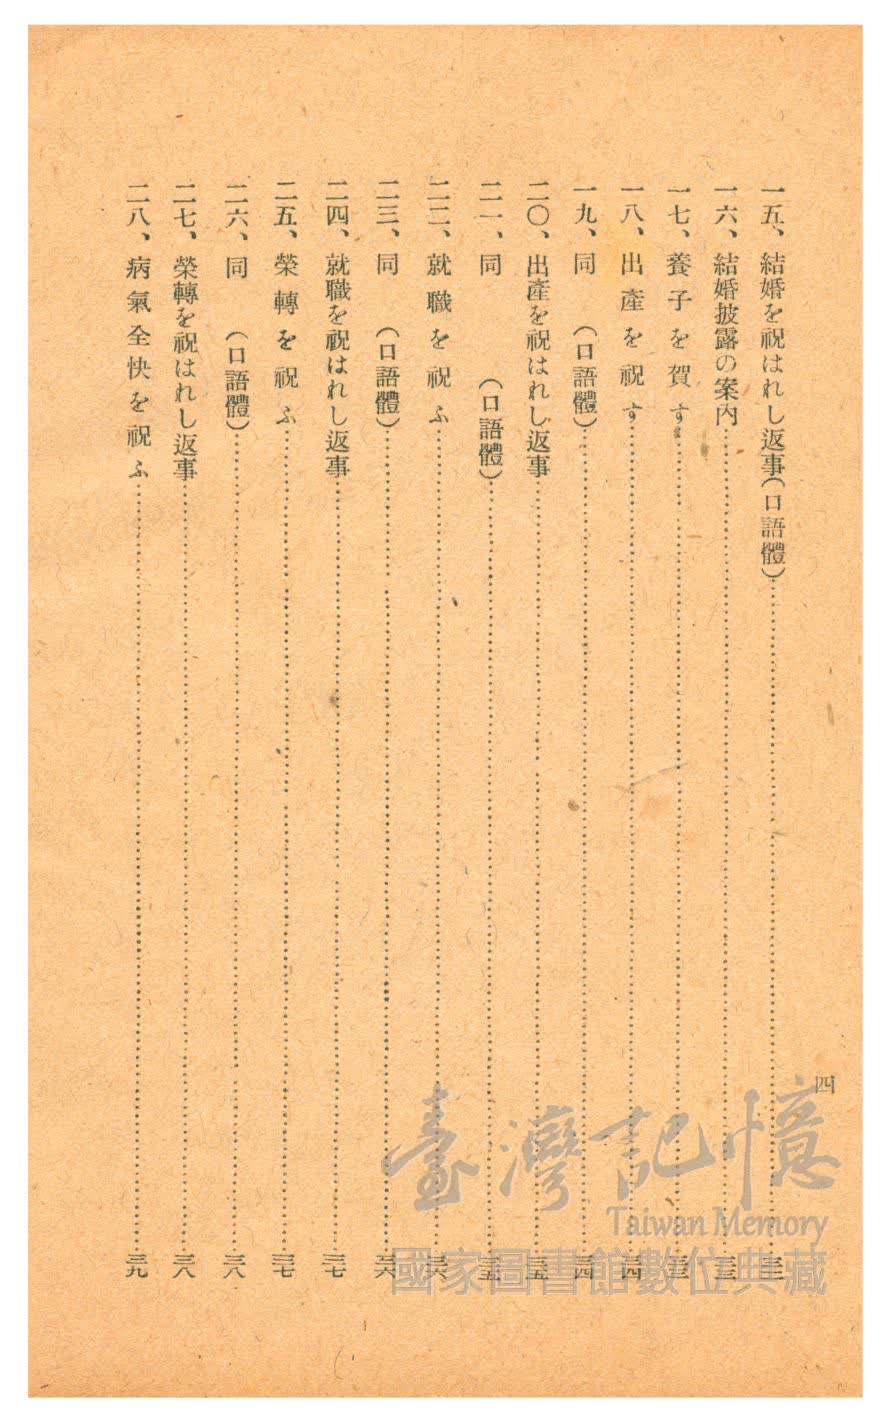 四
一五、結婚を祝はれし返事(口語體)……三三
一六、結婚披露の案內……三三
一七、養子を賀す……三三
一八、出產を祝す……三四
一九、同 (口語體)……三四
二〇、出產を祝はれし返事……三五
二一、同 (口語體)……三五
二二、就職を祝ふ……三六
二三、同 (口語體)……三六
二四、就職を祝はれし返事……三七
二五、榮轉を祝ふ……三七
二六、同 (口語體)……三八
二七、榮轉を祝はれし返事……三八
二八、病氣全快を祝ふ……三九
臺灣記憶
Taiwan Memory
國家圖書館數位典藏